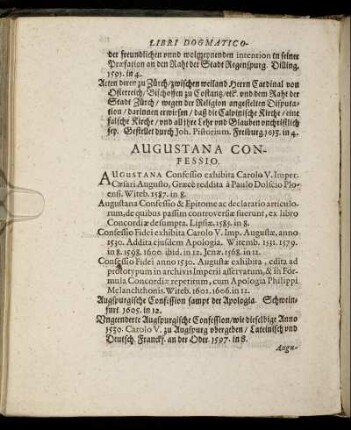 LIBRI DOGMATICO-
der freundlichen vnnd wolgegründten intention in seiner
Præfation an den Raht der Stadt Regenspurg. Dilling.
1591. in 4.
Acten derer zu Zürch/ zwischen weiland Herrn Cardinal von
Osterreich/ Bischoffen zu Costantz/ etc. vnd dem Raht der
Stadt Zürch/ wegen der Religion angestelten Disputa-
tion/ darinnen erwiesen/ daß die Calvinische Kirche/ eine
falsche Kirche/ vnd all ihre Lehr vnd Glauben vnchristlich
sey. Gestellet durch Joh. Pistorium. Freiburg in 4.
AUGUSTANA CON-
FESSIO.
AUGUSTANA Confessio exhibita Carolo V. Imper.
Cæsari Augusto, Græcè reddita à Paulo Dolscio Plo-
ensi. Witeb. 1587. in 8.
Augustana Confessio & Epitome ac declaratio articulo-
rum, de quibus passim controversiæ fuerunt, ex libro
Concordiæ desumpta. Lipsiæ. 1585. in 8.
Confessio Fidei exhibita Carolo V. Imp. Augustæ, anno
1530. Addita ejusdem Apologia. Witemb. 1531. 1579.
in 8. 1598. 1600. ibid. in 12. Jenæ. 1568. in 11.
Confessio Fidei anno 1530. Augustæ exhibita, edita ad
prototypum in archivis Imperii asservatum, & in For-
mula Concordiæ repetitum, cum Apologia Philippi
Melanchthonis. Witeb. 1602. 1606. in 12.
Augspurgische Confession sampt der Apologia. Schwein-
furt. 1605. in 12.
Vngeenderte Augspurgische Confession/ wie dieselbige Anno
1530. Carolo V. zu Augspurg vbergeben/ Lateinisch vnd
Deutsch. Franckf. an der Oder. 1597. in 8.
Augu-